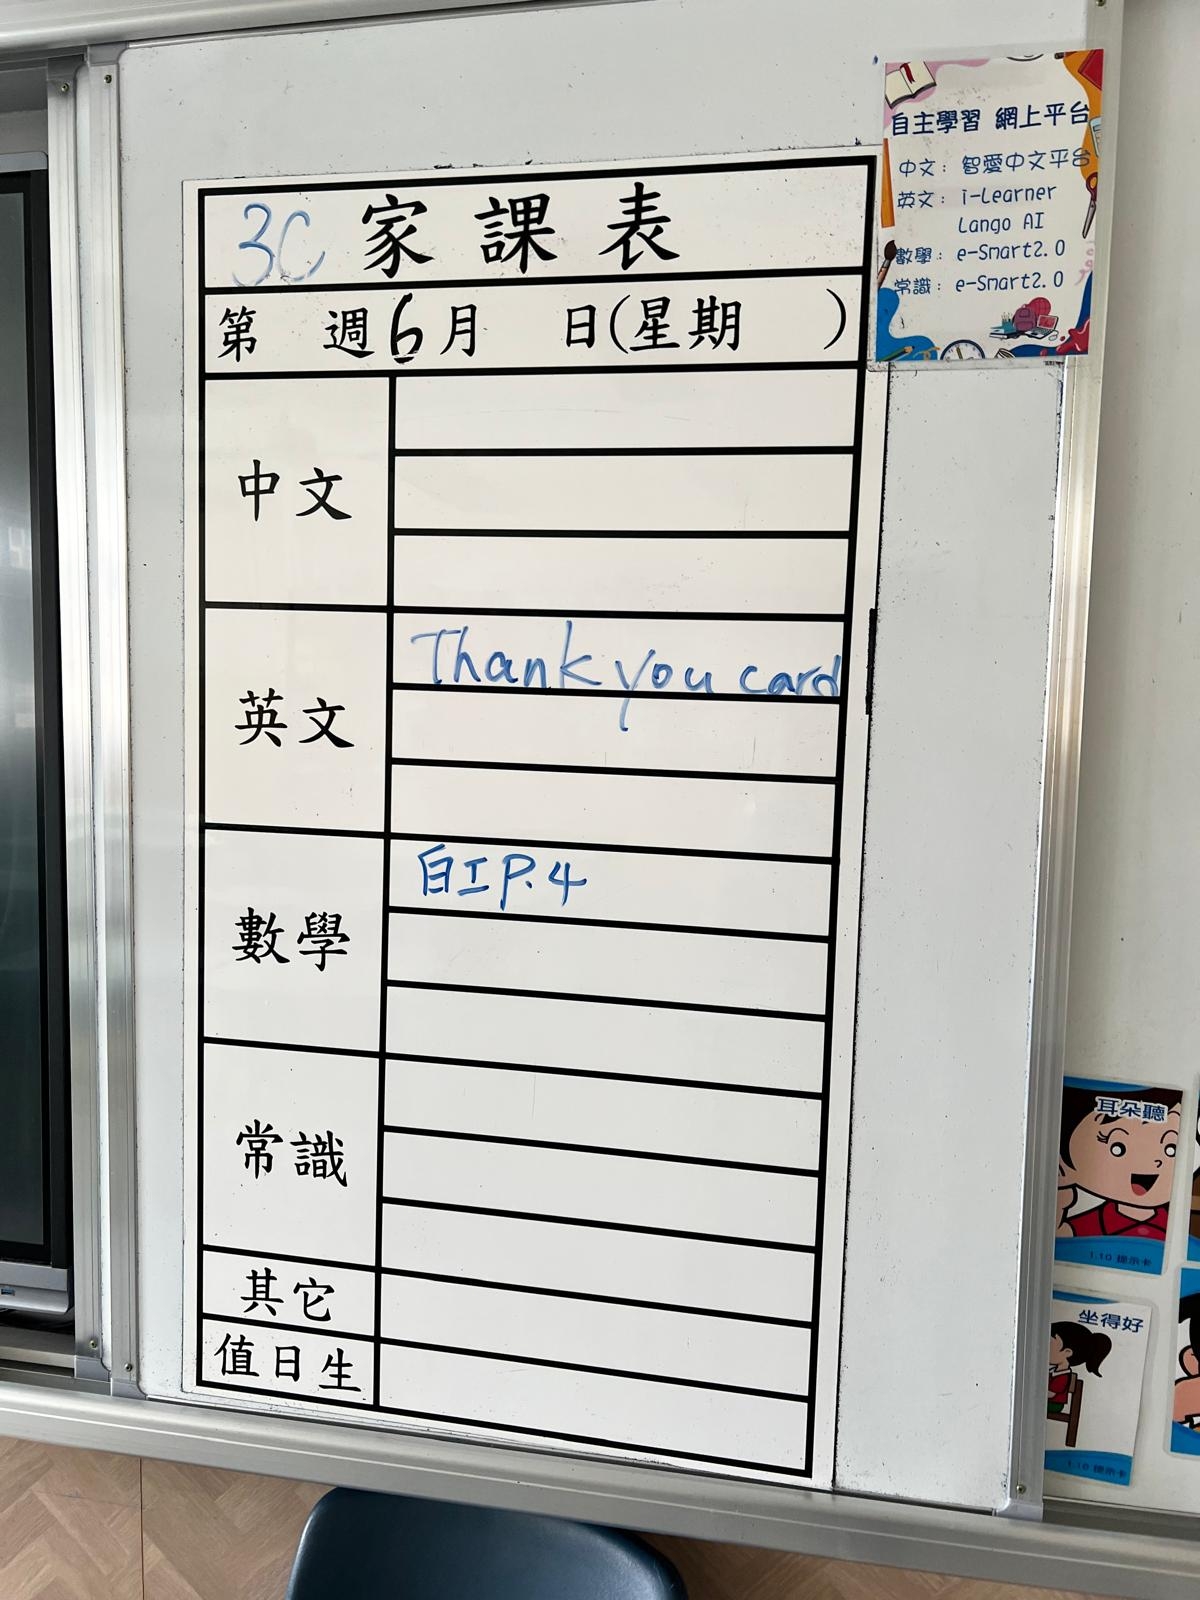 自主學習 網上平台
中文：智愛中文平台
英文：i-Learner
Lango AI
數學：e-Smart2.0
常識：e-Smart2.0
3C 家課表
第 週6月 日(星期 )
中文
英文
Thank you card
數學
白工 P.4
常識
其它
值日生
耳朵聽
1.10 提示卡
坐得好
1.10 提示卡